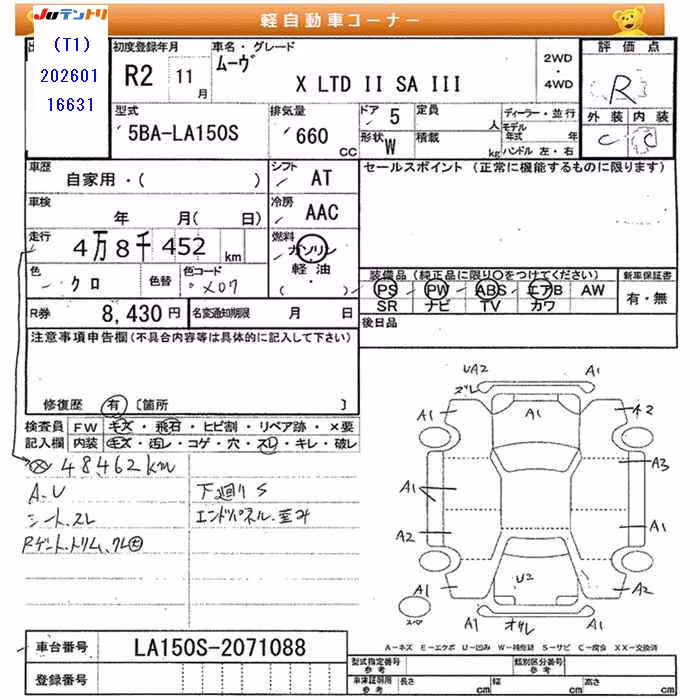 JUテントリ
軽自動車コーナー
(T1)
202601
16631
初度登録年月
R2 11月
車名・グレード
ムーヴ
X LTD II SA III
2WD
・
4WD
評価点
R
外装 内装
C C
型式
5BA-LA150S
排気量
660 CC
ドア 5
形状 W
定員 人
積載 kg
ディーラー・並行
モデル年式 年
ハンドル 左・右
車歴
自家用・( )
シフト AT
セールスポイント (正常に機能するものに限ります)
車検
年 月( 日)
冷房 AAC
走行
4万8千452 km
燃料
ガソリン
軽油
・( )
色 クロ
色替
色コード X07
装備品 (純正品に限り○をつけてください)
PS PW ABS エアB AW
SR ナビ TV カワ
新車保証書
有・無
R券 8,430円
名変通知期限 月 日
後日品
注意事項申告欄(不具合内容等は具体的に記入して下さい)
修復歴 有 〔箇所 〕
検査員 FW キズ・飛石・ヒビ割・リペア跡・×要
記入欄 内装 キズ・汚レ・コゲ・穴・スレ・キレ・破レ
48462km
A.U
下廻りS
シート.スレ
エンドパネル.歪み
Rゲート.トリム.ワレ
UA2
ズレ
A1
A1
A1
A2
A3
A1
A2
A1
A1
U2
A2
スペア
A1
オサレ
A1
車台番号 LA150S-2071088
A-キズ E-エクボ U-凹み W-補修跡 S-サビ C-腐食 XX-交換済
登録番号
型式指定番号 参考
類別区分番号 参考
車庫証明用 参考
長さ cm
幅 cm
高さ cm